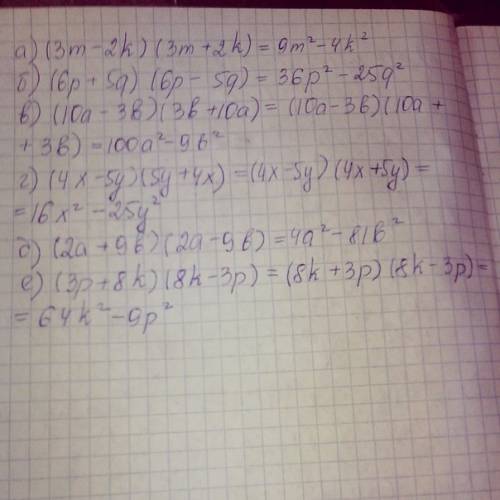 а) (3m - 2k) (3m + 2k) = 9m² - 4k²
б) (6p + 5q) (6p - 5q) = 36p² - 25q²
в) (10a - 3в)(3в + 10a) = (10a - 3в)(10a +
+ 3в) = 100a² - 9в²
г) (4x - 5y)(5y + 4x) = (4x - 5y) (4x + 5y) =
= 16x² - 25y²
д) (2a + 9в) (2a - 9в) = 4a² - 81в²
е) (3p + 8k) (8k - 3p) = (8k + 3p) (8k - 3p) =
= 64k² - 9p²